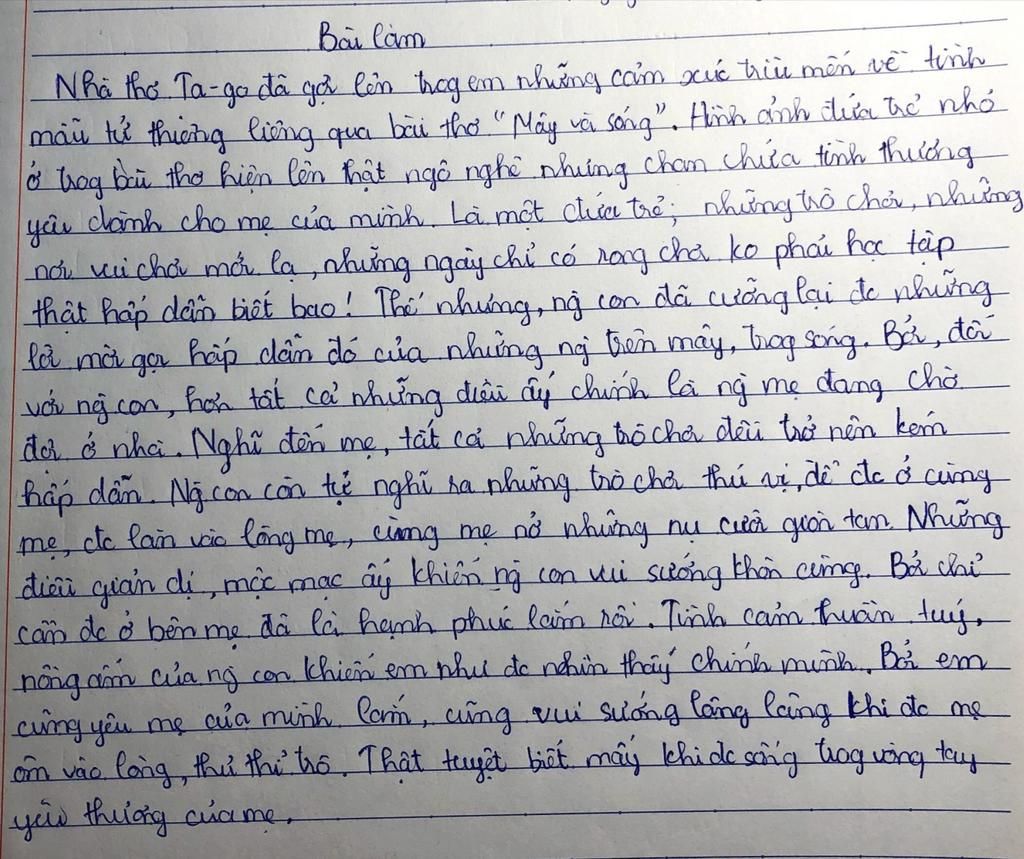 Bài làm
Nhà thơ Ta-go đã gợi lên trog em những cảm xúc trìu mến về tình
mẫu tử thiêng liêng qua bài thơ "Mây và sóng". Hình ảnh đứa trẻ nhỏ
ở trog bài thơ hiện lên thật ngô nghê nhưng chan chứa tình thương
yêu dành cho mẹ của mình. Là một đứa trẻ, những trò chơi, những
nơi vui chơi mới lạ, những ngày chỉ có rong chơi ko phải học tập
thật hấp dẫn biết bao! Thế nhưng, ng con đã cưỡng lại đc những
lời mời gọi hấp dẫn đó của những ng trên mây, trog sóng. Bởi, đối
với ng con, hơn tất cả những điều ấy chính là ng mẹ đang chờ
đợi ở nhà. Nghĩ đến mẹ, tất cả những trò chơi đều trở nên kém
hấp dẫn. Ng con còn tự nghĩ ra những trò chơi thú vị, để đc ở cùng
mẹ, đc lăn vào lòng mẹ, cùng mẹ nở những nụ cười giòn tan. Những
điều giản dị, mộc mạc ấy khiến ng con vui sướng khôn cùng. Bởi chỉ
cần đc ở bên mẹ đã là hạnh phúc lắm rồi. Tình cảm thuần tuý,
nồng ấm của ng con khiến em như đc nhìn thấy chính mình. Bởi em
cũng yêu mẹ của mình lắm, cũng vui sướng lâng lâng khi đc mẹ
ôm vào lòng, thủ thỉ trò. Thật tuyệt biết mấy khi đc sống trog vòng tay
yêu thương của mẹ.